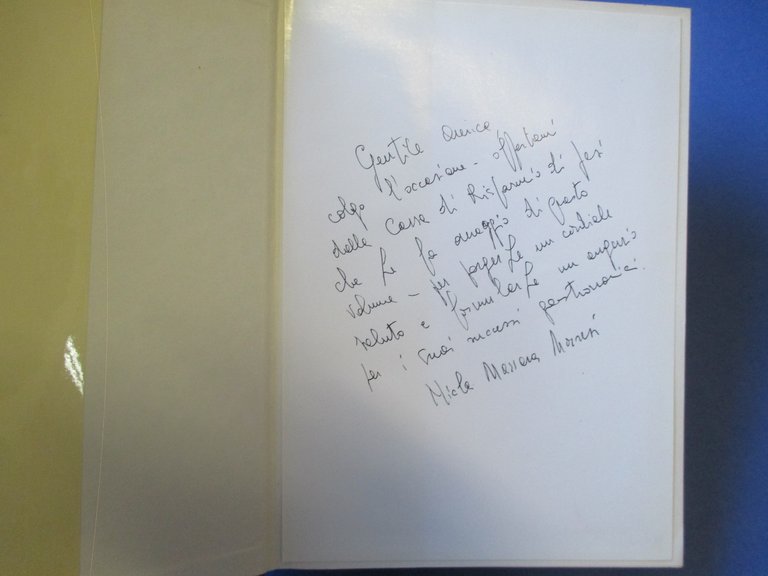 Gentile
colgo l'occasione - offertami
dalla Cassa di Risparmio di Jesi
che Le fa omaggio di questo
volume - per porgerLe un cordiale
saluto e formularLe un augurio
per i Suoi successi gastronomici.
Massera Moresi